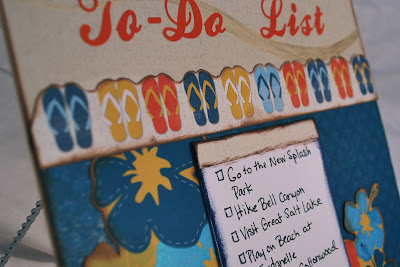 To-Do List
Go to the New Splash
Park
Hike Bell Canyon
Visit Great Salt Lake
Play on Beach at
Cottonwood